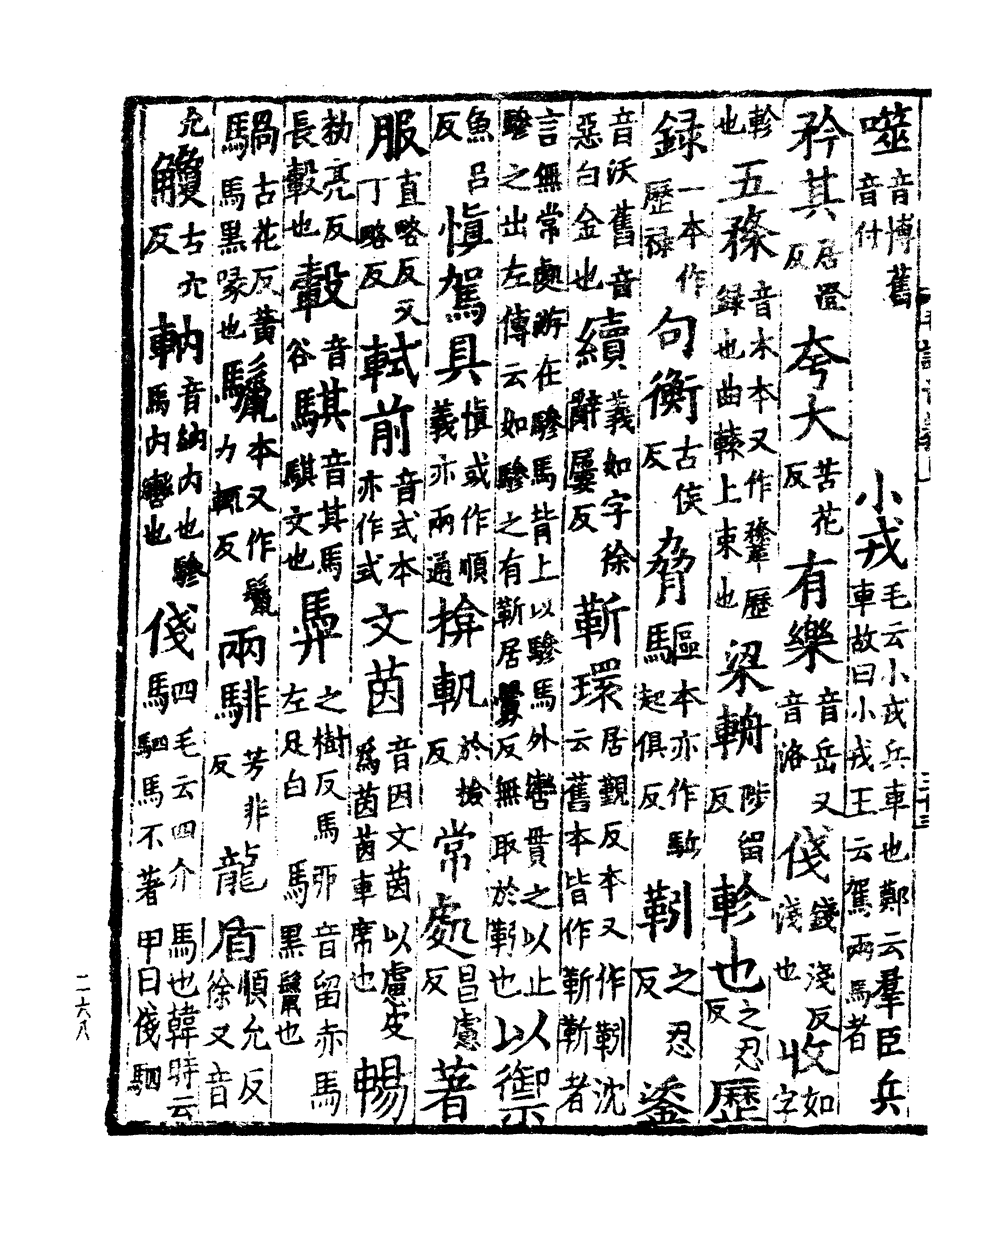 噬音博舊音付　小戎毛云小戎兵車也鄭云羣臣兵車故曰小戎王云駕兩馬者
矜其居澄反　夸大苦花反　有樂音岳又音洛　俴錢淺反淺也　收如字
軫也　五楘音木本又作鞪歷録也曲轅上束也　梁輈陟留反　軫也之忍反　歷
録一本作歷禄　句衡古侯反　脅驅本亦作駈起俱反　靷之忍反　鋈
音沃舊音惡白金也　續義如字徐辭屢反　靳環居觀反本又作靷沈云舊本皆作靳靳者
言無常處游在驂馬背上以驂馬外轡貫之以止驂之出左傳云如驂之有靳居舋反無取於靷也　以御
魚呂反　愼駕具愼或作順義亦兩通　揜軓於檢反　常處昌慮反　著
服直略反又丁略反　軾前音式本亦作式　文茵音因文茵以虎皮爲茵茵車席也　暢
勑亮反長轂也　轂音谷　騏音其馬騏文也　馵之樹反馬左足白　馬音留赤馬黑鬣也
騧古花反黃馬黑喙也　驪本又作鬣力輒反　兩騑芳非反　龍盾順允反徐又音
允　觼古穴反　軜音納內也驂馬內轡也　俴駟毛云四介馬也韓詩云駟馬不著甲曰俴駟
二六八